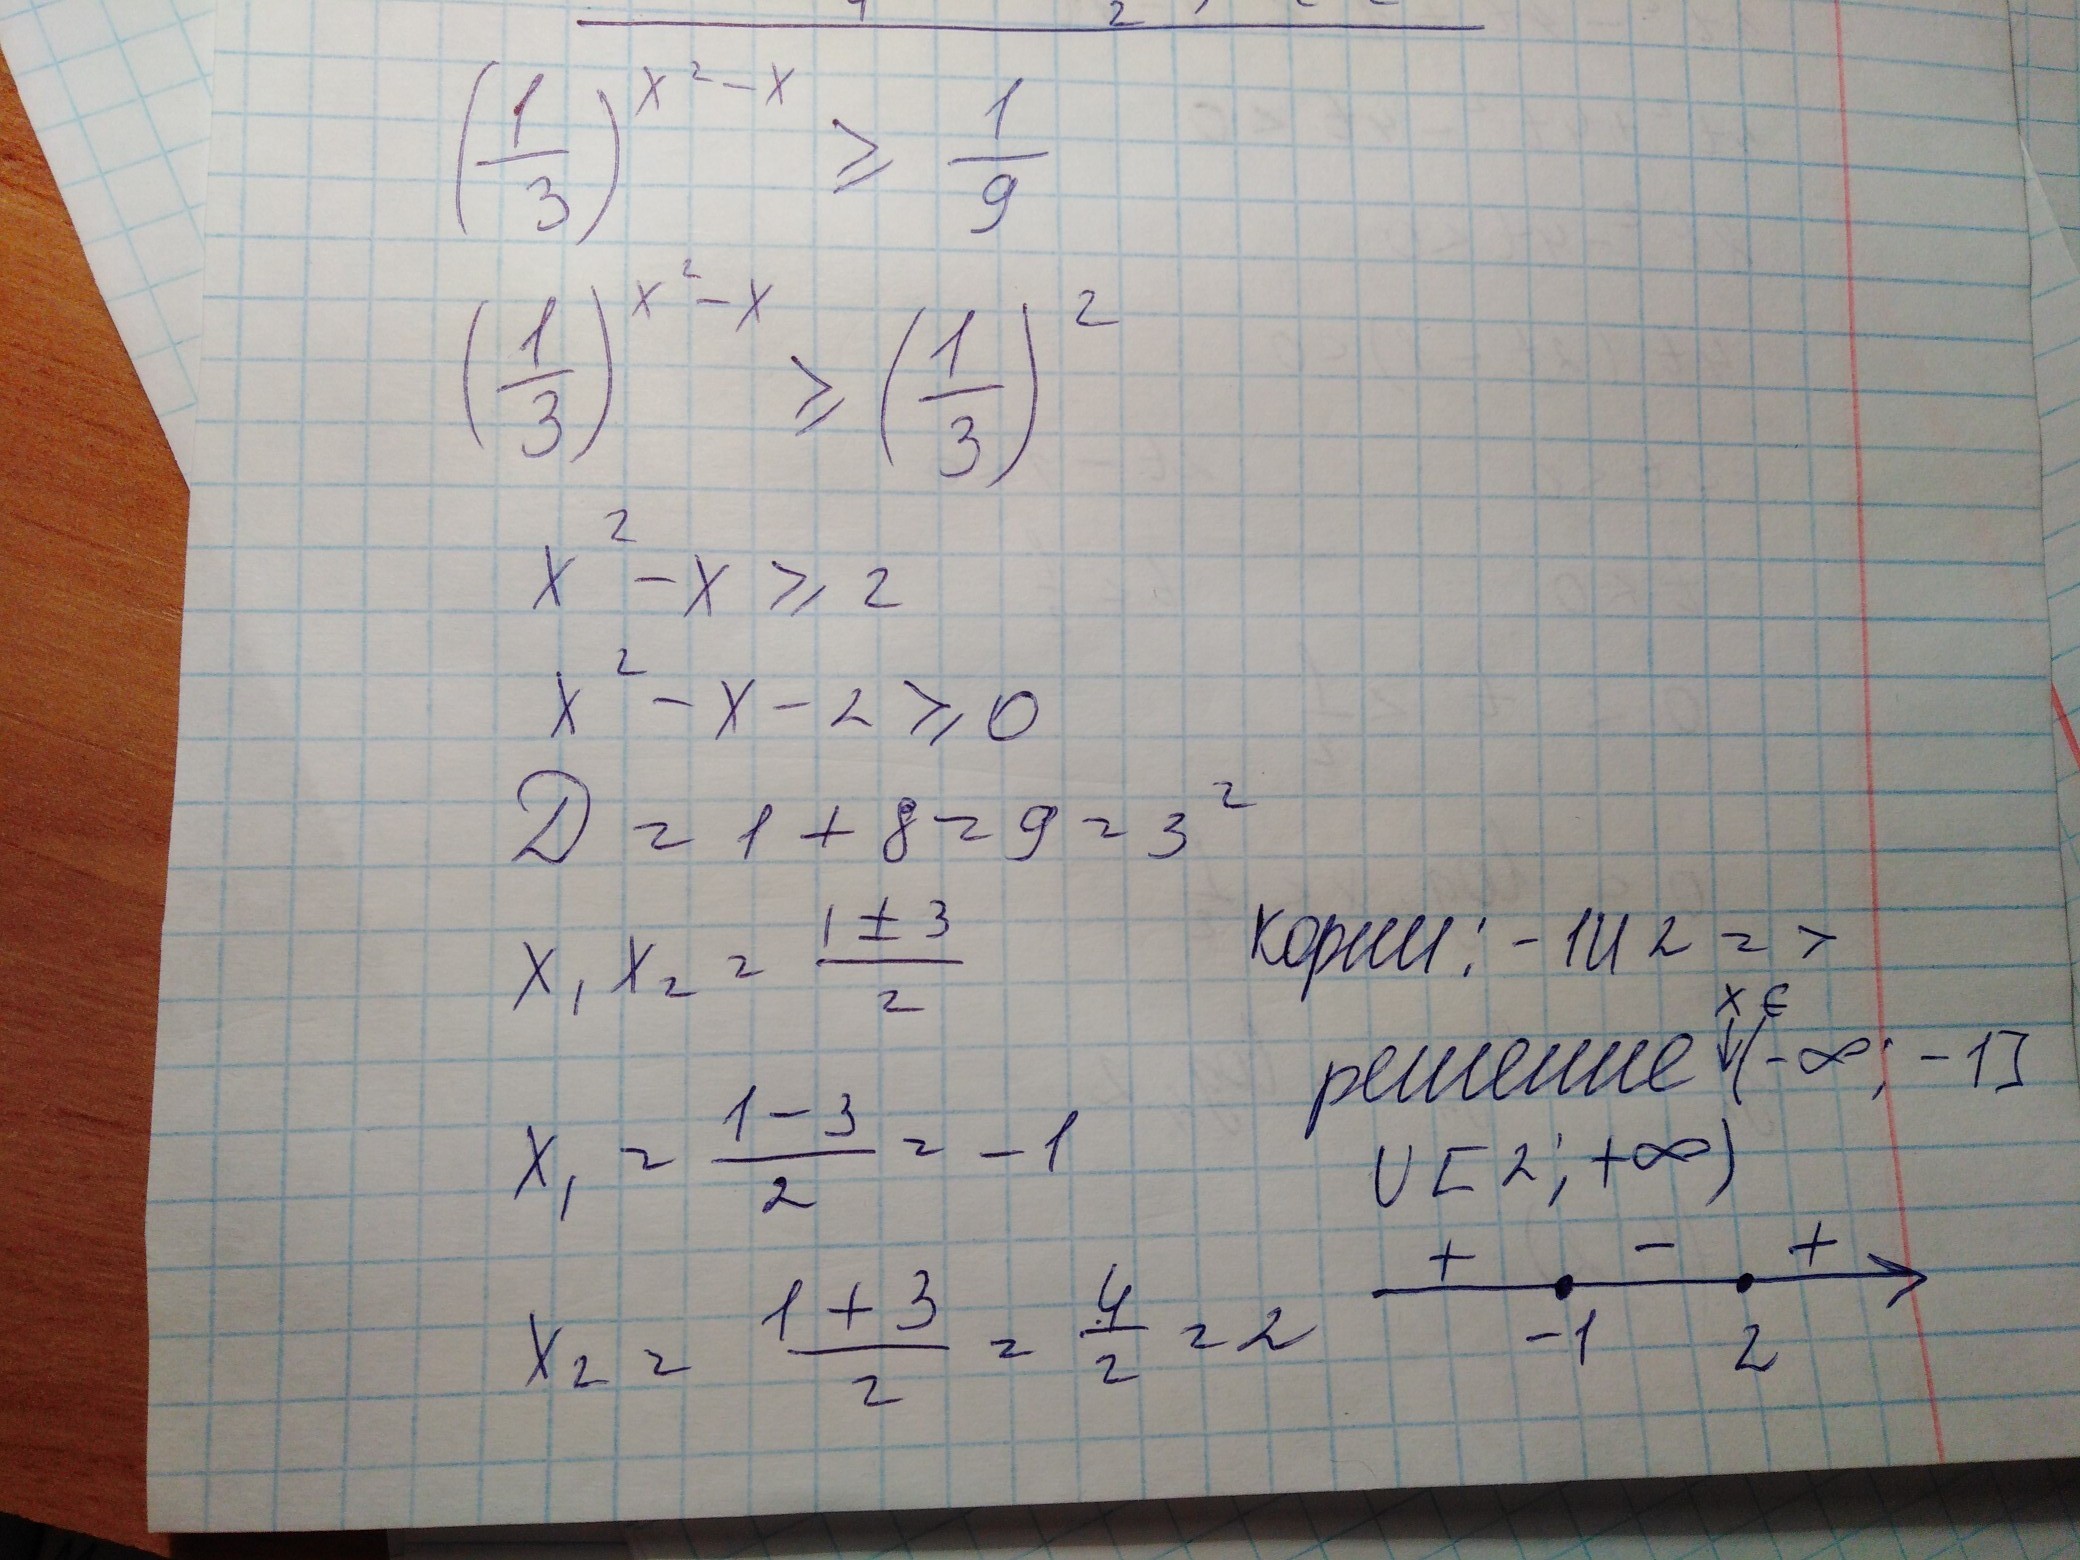 (1/3)^(x²-x) ⩾ 1/9
(1/3)^(x²-x) ⩾ (1/3)²
x²-x ⩾ 2
x²-x-2 ⩾ 0
D = 1+8=9=3²
x₁ x₂ = (1±3)/2
x₁ = (1-3)/2 = -1
x₂ = (1+3)/2 = 4/2 = 2
корни: -1 и 2 =>
решение x∈ ↓ (-∞; -1]
∪[2; +∞)
+ - +
-1 2